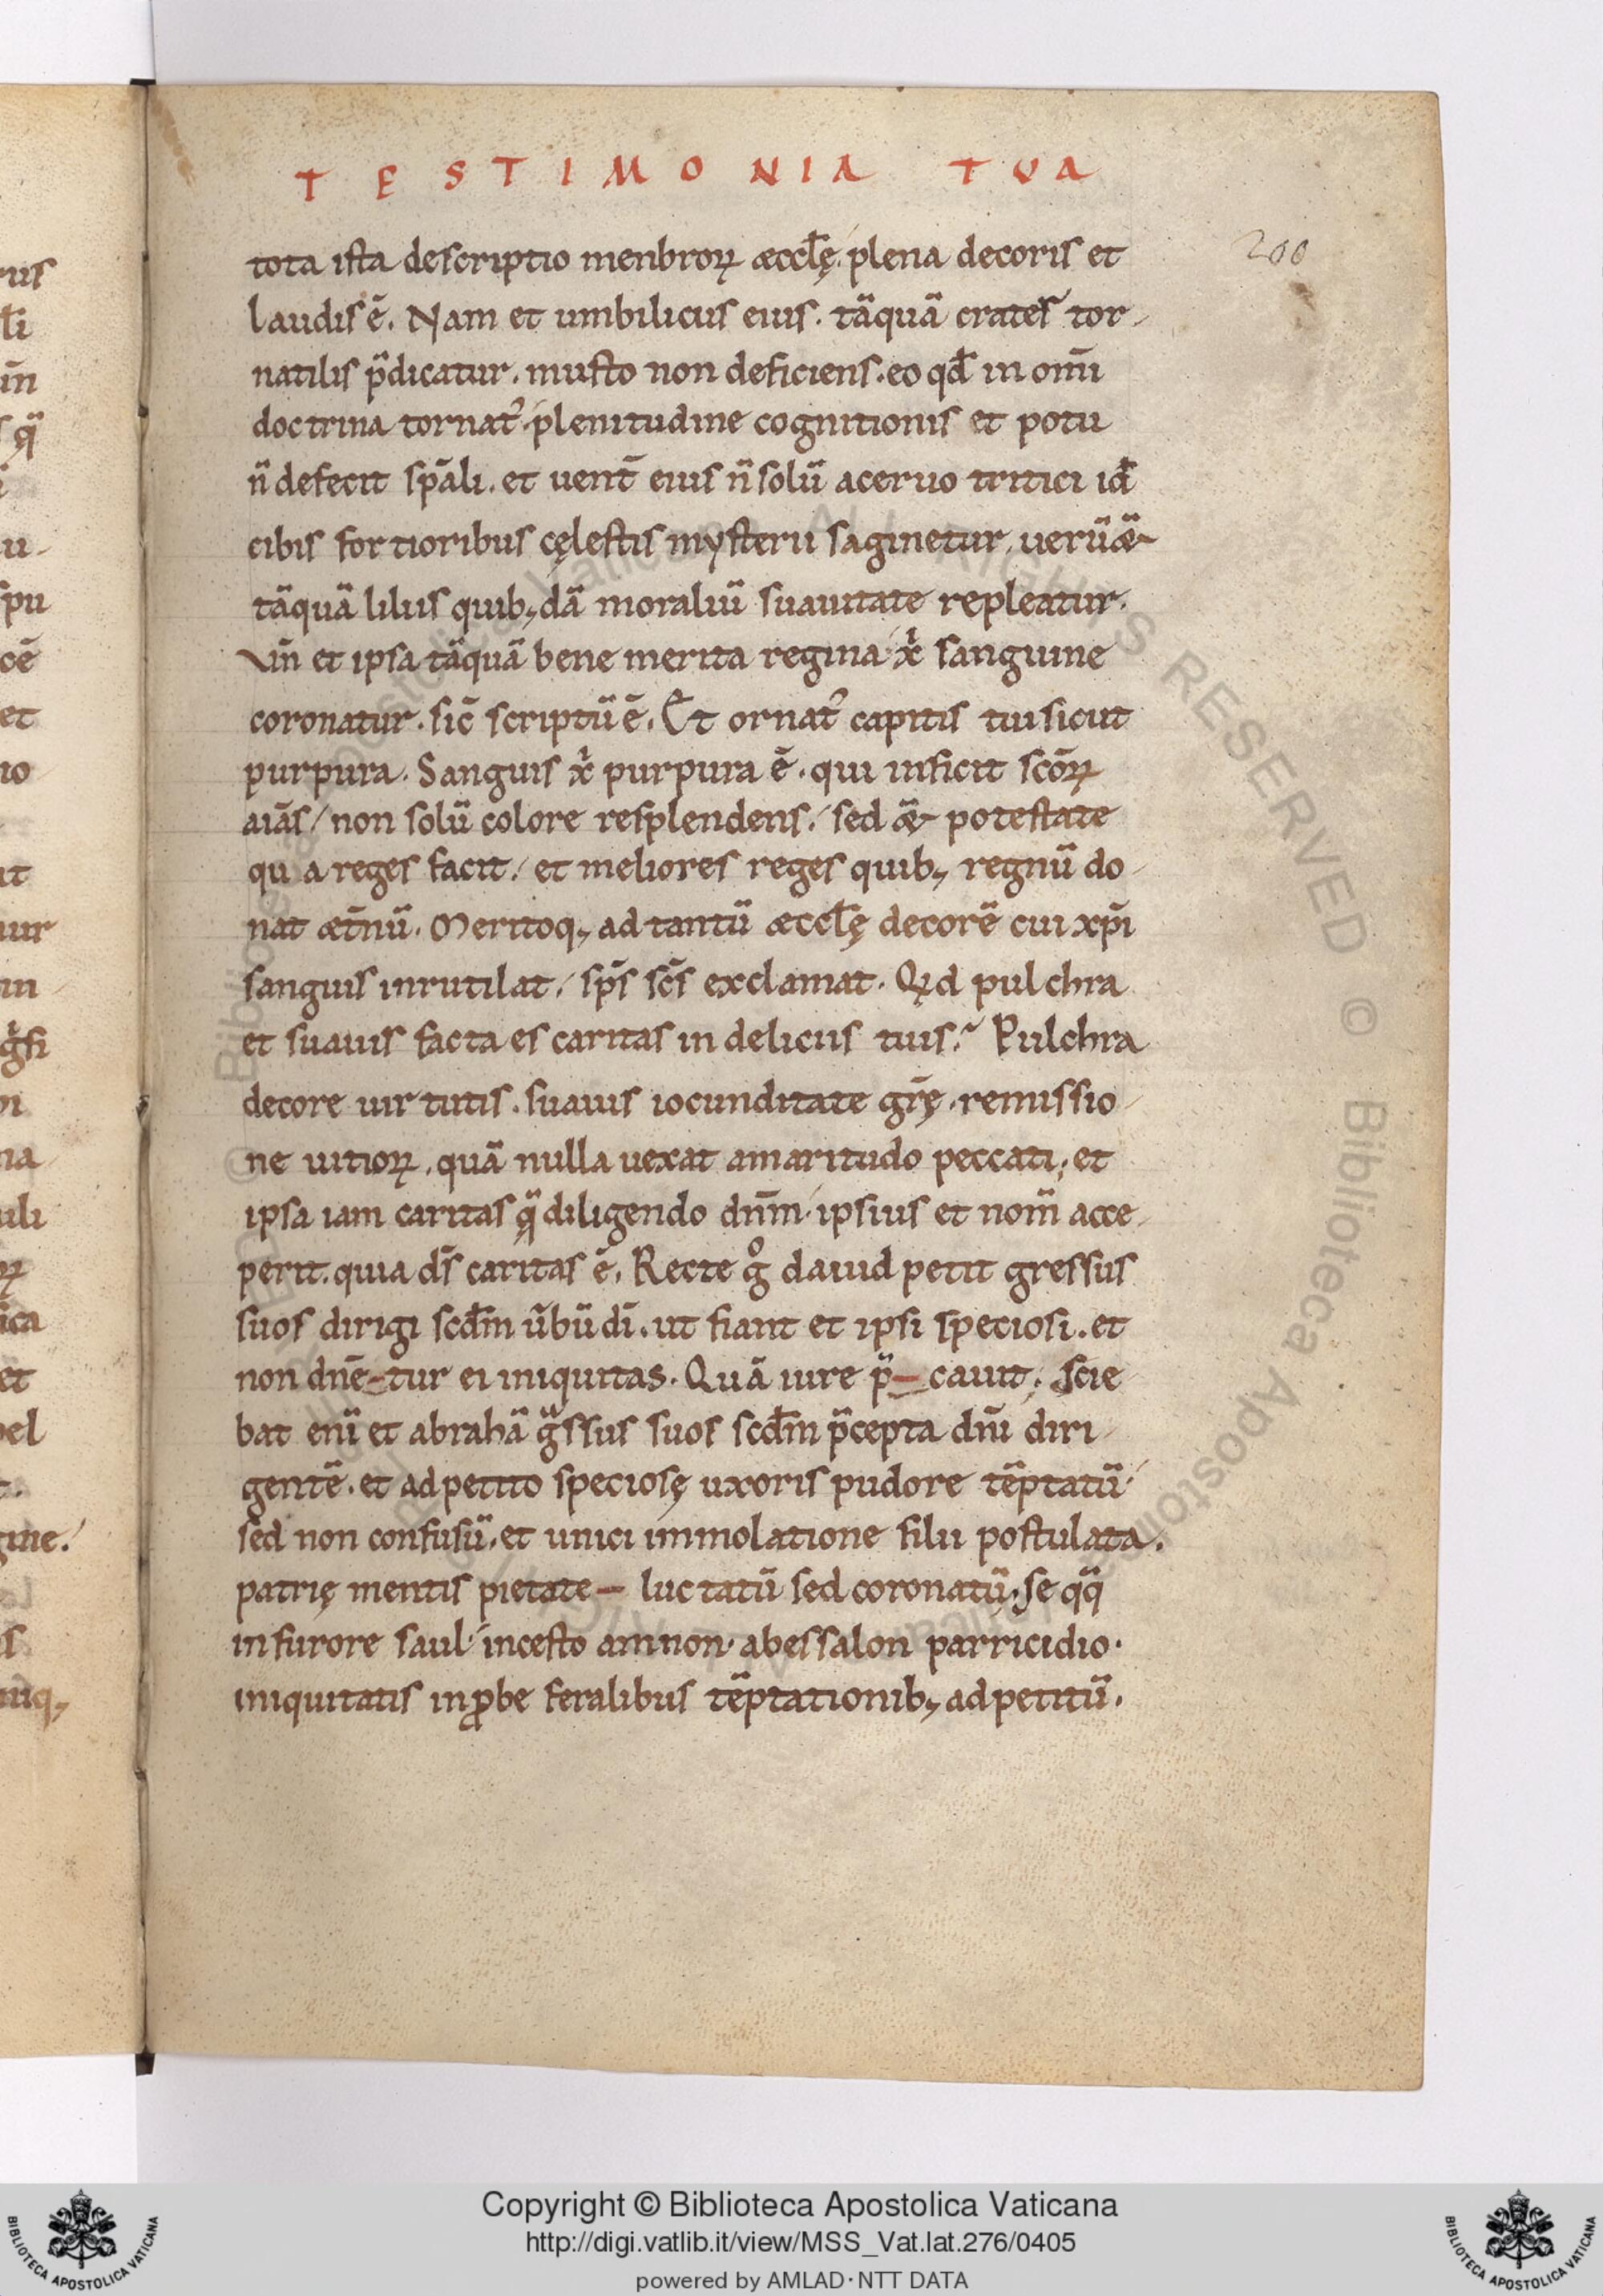 T E S T I M O N I A T V A
200
tota ista descriptio menbrorꝝ æccłę. plena decoris et
laudis ē. Nam et umbilicus eius. tāquā crater tor-
natilis p̄dicatur. musto non deficiens. eo qđ in om̄i
doctrina tornat᷒. plenitudine cognitionis et potu
n̄ defecit sp̄ali. et uent̄ eius n̄ solū aceruo tritici id̄
cibis fortioribus cęlestis mysterii saginetur. uerū &
tāquā liliis quib; dā moraliū suauitate repleatur.
Vn̄ et ipsa tāquā bene merita regina x̓ sanguine
coronatur. sic̄ scriptū ē. Et ornat᷒ capitis tui sicut
purpura. Sanguis x̓ purpura ē. qui inficit scōꝝ
aīas / non solū colore resplendens. sed & potestate
qua reges facit. et meliores reges quib; regnū do-
nat æt̄nū. Meritoq; ad tantū æccłę decorē cui xp̄i
sanguis inrutilat. sp̄s sc̄s exclamat. Qͥd pulchra
et suauis facta es caritas in deliciis tuis? Pulchra
decore uirtutis. suauis iocunditate gr̄ę. remissio-
ne uitioꝝ. quā nulla uexat amaritudo peccati; et
ipsa iam caritas q̄ diligendo dn̄m ipsius et nom̄ acce-
perit. quia ds̄ caritas ē. Recte gͦ dauid petit gressus
suos dirigi scđm u̅bū dī. ut fiant et ipsi speciosi. et
non dnē-tur ei iniquitas. Quā iure p̄-cauit; Scie-
bat enī et abrahā gͣssus suos scđm p̄cepta dn̄i diri-
gentē. et adpetito speciosę uxoris pudore tēptatū
sed non confusū. et unici immolatione filii postulata.
patrię mentis pietate- luctatū sed coronatū. se qͦq̄
in furore saul incesto amnon. abessalon parricidio.
iniquitatis inꝓbe feralibus tēptationib; adpetitū.
Copyright © Biblioteca Apostolica Vaticana
http://digi.vatlib.it/view/MSS_Vat.lat.276/0405
powered by AMLAD·NTT DATA